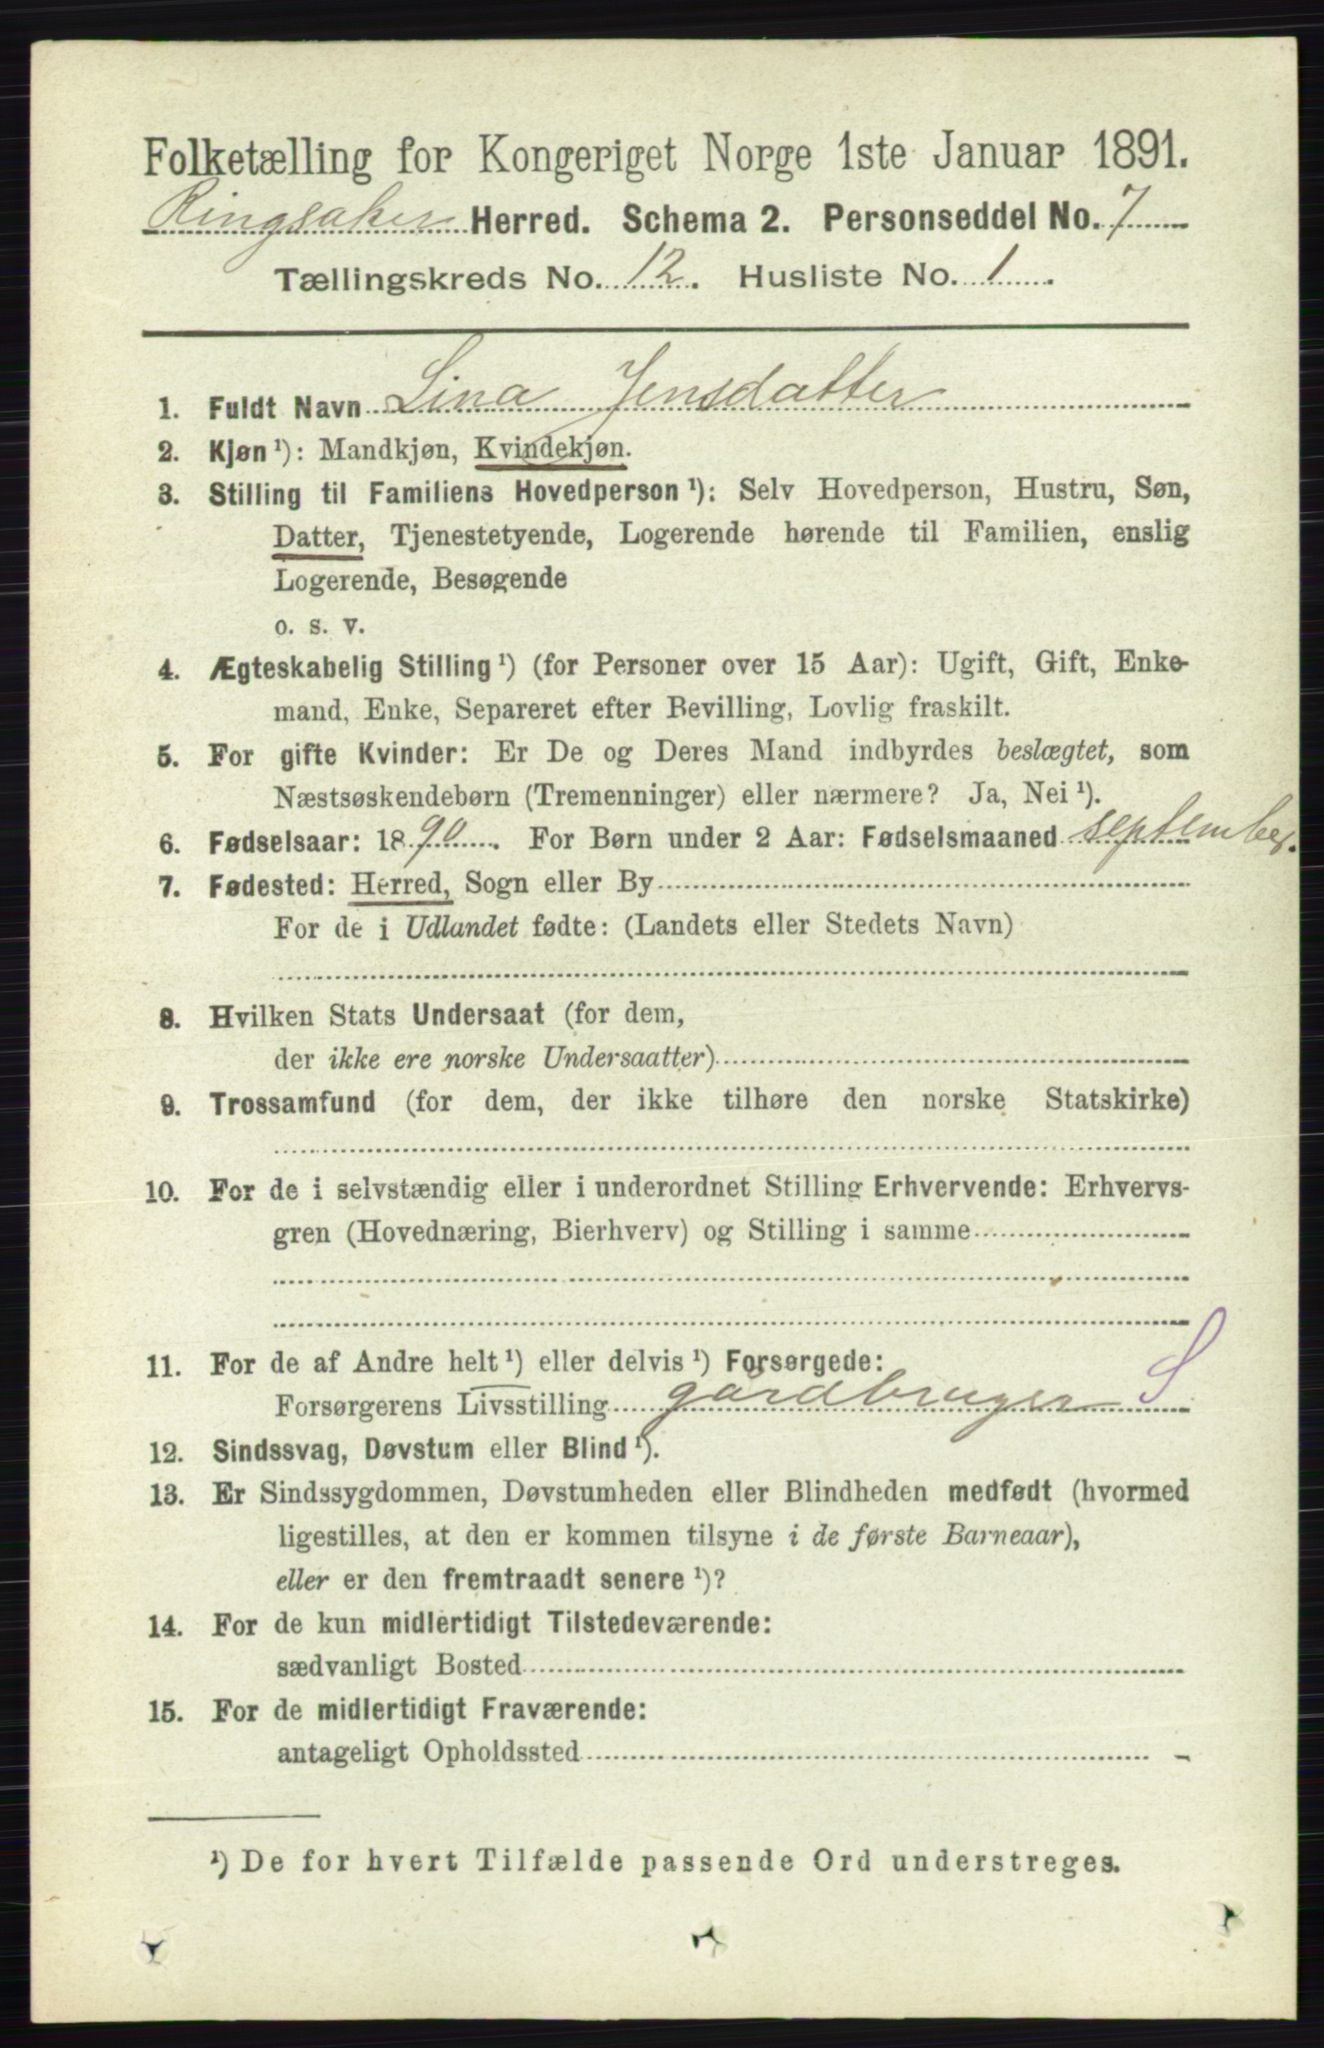 Folketælling for Kongeriget Norge 1ste Januar 1891.
Ringsaker Herred. Schema 2. Personseddel No. 7
Tællingskreds No. 12. Husliste No. 1.
1. Fuldt Navn Lina Jensdatter
2. Kjøn¹): Mandkjøn, Kvindekjøn.
3. Stilling til Familiens Hovedperson¹): Selv Hovedperson, Hustru, Søn,
Datter, Tjenestetyende, Logerende hørende til Familien, enslig
Logerende, Besøgende
o. s. v.
4. Ægteskabelig Stilling¹) (for Personer over 15 Aar): Ugift, Gift, Enke-
mand, Enke, Separeret efter Bevilling, Lovlig fraskilt.
5. For gifte Kvinder: Er De og Deres Mand indbyrdes beslægtet, som
Næstsøskendebørn (Tremenninger) eller nærmere? Ja, Nei¹).
6. Fødselsaar: 1890. For Børn under 2 Aar: Fødselsmaaned september.
7. Fødested: Herred, Sogn eller By
For de i Udlandet fødte: (Landets eller Stedets Navn)
8. Hvilken Stats Undersaat (for dem,
der ikke ere norske Undersaatter)
9. Trossamfund (for dem, der ikke tilhøre den norske Statskirke)
10. For de i selvstændig eller i underordnet Stilling Erhvervende: Erhvervs-
gren (Hovednæring, Bierhverv) og Stilling i samme
11. For de af Andre helt¹) eller delvis¹) Forsørgede:
Forsørgerens Livsstilling gårdbruger S
12. Sindssvag, Døvstum eller Blind¹).
13. Er Sindssygdommen, Døvstumheden eller Blindheden medfødt (hvormed
ligestilles, at den er kommen tilsyne i de første Barneaar),
eller er den fremtraadt senere¹)?
14. For de kun midlertidigt Tilstedeværende:
sædvanligt Bosted
15. For de midlertidigt Fraværende:
antageligt Opholdssted
¹) De for hvert Tilfælde passende Ord understreges.